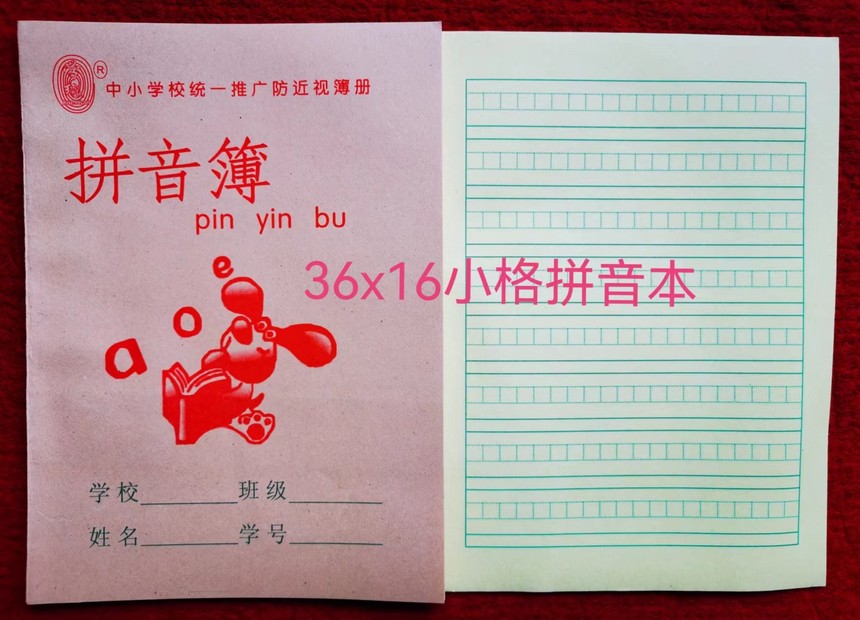 ®
中小学校统一推广防近视簿册
拼音簿
pin yin bu
a o e
36x16小格拼音本
学校________班级________
姓名________学号________